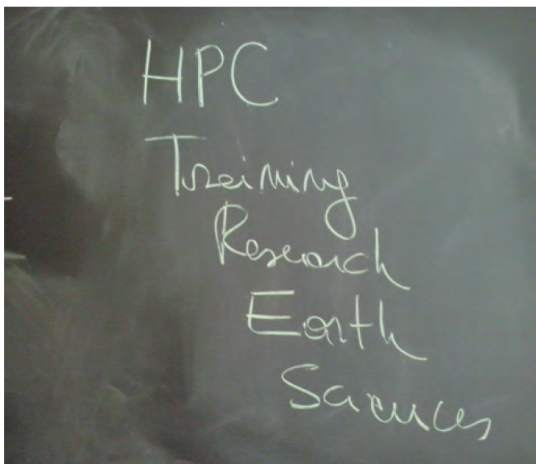 HPC
Training
Research
Earth
Sciences